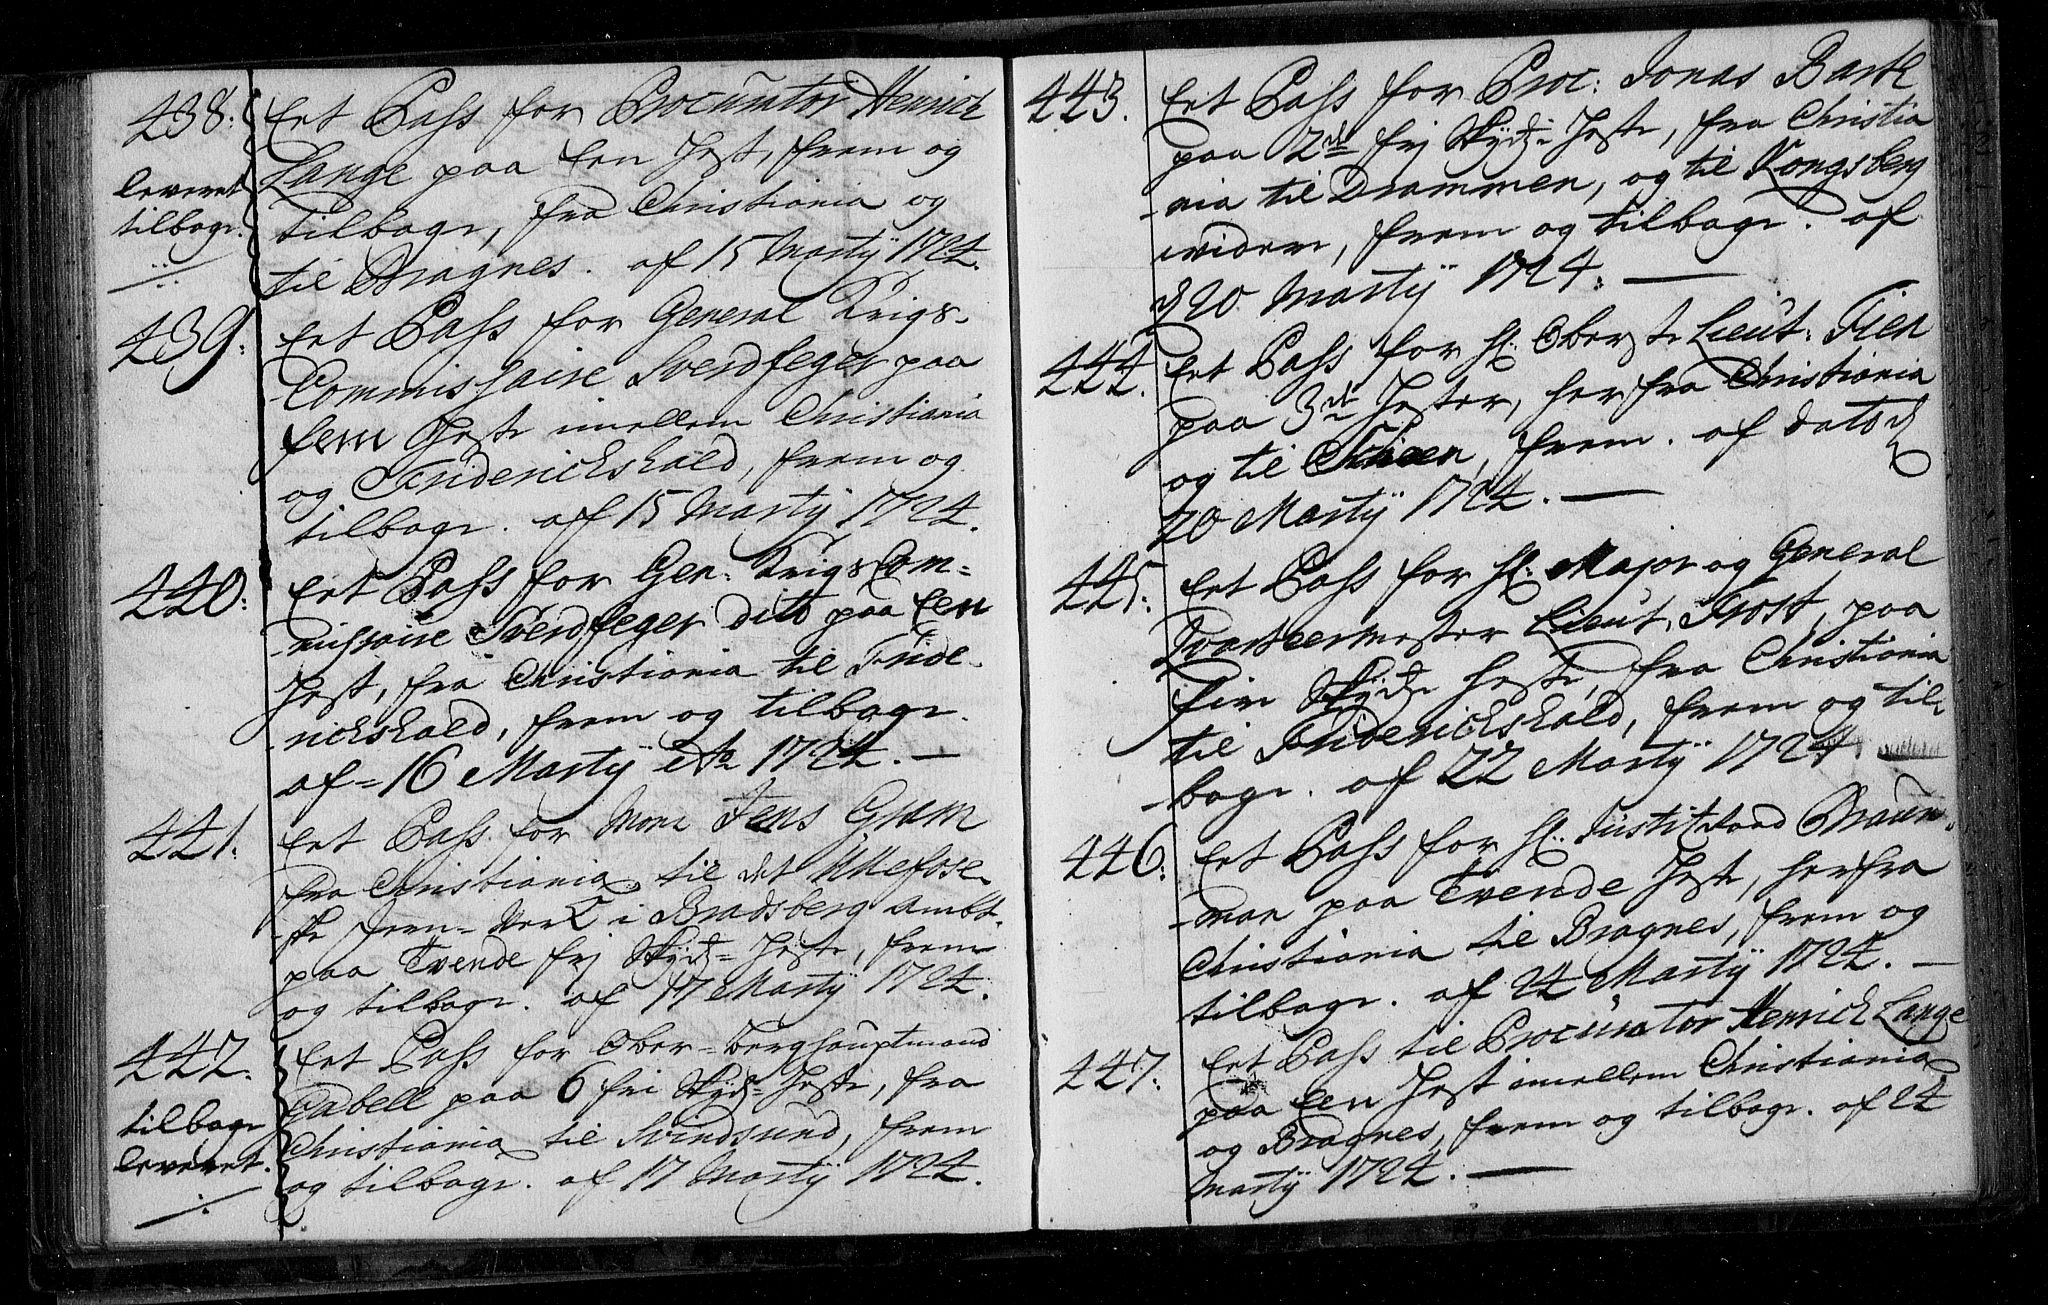 438:
leveret
tilbage.
Eet Pass for Procurator Henrich
Lange paa Een Hest, frem og
tilbage, fra Christiania og
til Bragnes. af 15 Martij 1724.
439:
Eet Pass for General Krigs-
Commissaire Sverdfeger paa
fem Heste imellem Christiania
og Friderickshald, frem og
tilbage. af 15 Martij 1724.
440:
Eet Pass for Gen: KrigsCom=
-missaire Sverdfeger dito paa Een
Hest, fra Christiania til Fride-
-rickshald, frem og tilbage.
af 16 Martij 1724.
441.
Eet Pass for Mons Jens Grum
fra Christiania til det Ullefose-
-ske Jern-Verck i Bradsberg ambt.
paa Tvende frj Skyds-Heste, frem
og tilbage. af 17 Martij 1724.
442.
tilbage
leveret.
Eet Pass for Ober-Berghauptmand
Gabell paa 6 fri Skyds-Heste, fra
Christiania til Svindsund, frem
og tilbage. af 17 Martij 1724.
443.
Eet Pass for Proc: Jonas Barth
paa 2de frj Skyds-Heste, fra Christia
-nia til Drammen, og til Kongsberg
videre, frem og tilbage. af
d 20 Martij 1724.
444.
Eet Pass for Hr: Oberste Lieut: Fien
paa 3de Hester, her fra Christiania
og til Scheen, frem. af dato d
20 Martij 1724.
445:
Eet Pass for Hr: Major og General
Qvarteermester Lieut, Frost, paa
fire Skyds Heste, fra Christiania
til Friderickshald, frem og til-
-bage. af 22 Martij 1724
446:
Eet Pass for Hr: Justitzraad Braun-
-man paa Tvende Heste, herfra
Christiania til Bragnes, frem og
tilbage. af 24 Martij 1724.
447:
Eet Pass til Procurator Henrich Lange
paa Een Hest imellem Christiania
og Bragnes, frem og tilbage. af 24
Martij 1724.